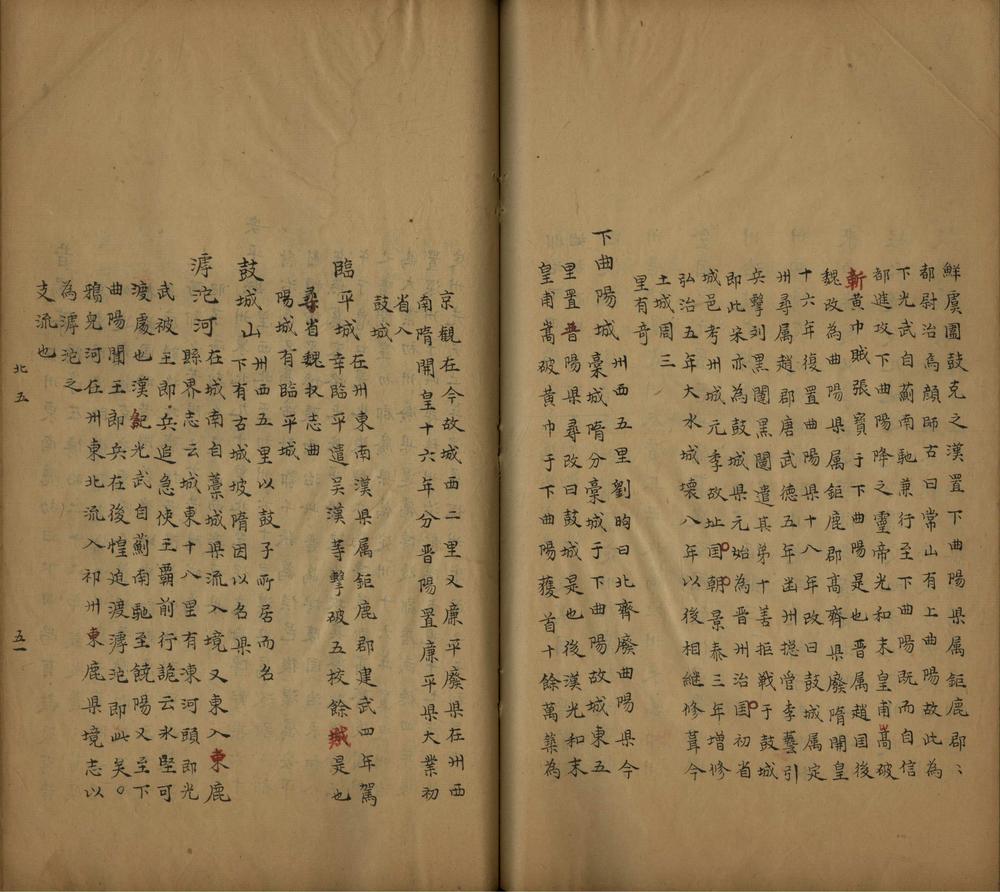 鮮虞圍鼓克之漢置下曲陽県属鉅鹿郡
都尉治烏顔師古曰常山有上曲陽故此為
下光武自薊南馳兼行至下曲陽既而自信
都進攻下曲陽降之靈帝光和末皇甫嵩破
斬黄巾賊張寳于下曲陽是也晋属趙国後
魏改為曲陽県属鉅鹿郡髙齊県廢隋開皇
十六年復置曲陽県十八年改曰鼓城属定
州尋属趙郡唐武德五年幽州揔管李藝引
兵擊刘黒闥黒闥遣其弟十善拒戦于鼓城
即此宋亦為鼓城県元始為晋州治国初省
城邑考州城元季故址国朝景泰三年增修
弘治五年大水城壊八年以後相継修葺今
土城周三
里有奇
下曲陽城州西五里劉昫曰北齊廢曲陽県今
里置晋陽県尋改曰鼓城是也後漢光和末
臺城隋分臺城于下曲陽故城東五
皇甫嵩破黄巾于下曲陽獲首十餘萬築為
京觀在今故城西二里又廉平廢県在州西
南隋開皇十六年分晋陽置廉平県大業初
省入
鼓城
臨平城在州東南漢県属鉅鹿郡建武四年駕
幸臨平遣吴漢等擊破五校餘賊是也
尋省魏収志曲
陽城有臨平城
鼓城山州西五里以鼓子所居而名
下有古城坡隋因以名県
滹沱河在城南自藁城県流入境又東入東鹿
縣界志云城東十八里有涷河頭即光
武被王郎兵追急使王覇前行詭云氷堅可
渡處也漢紀光武自薊南馳至饒陽又至下
曲陽聞王郎兵在後惶迫渡滹沱即此矣
鴉兒河在州東北流入祁州東鹿県境志以
為滹沱之
支流也
北五
五一